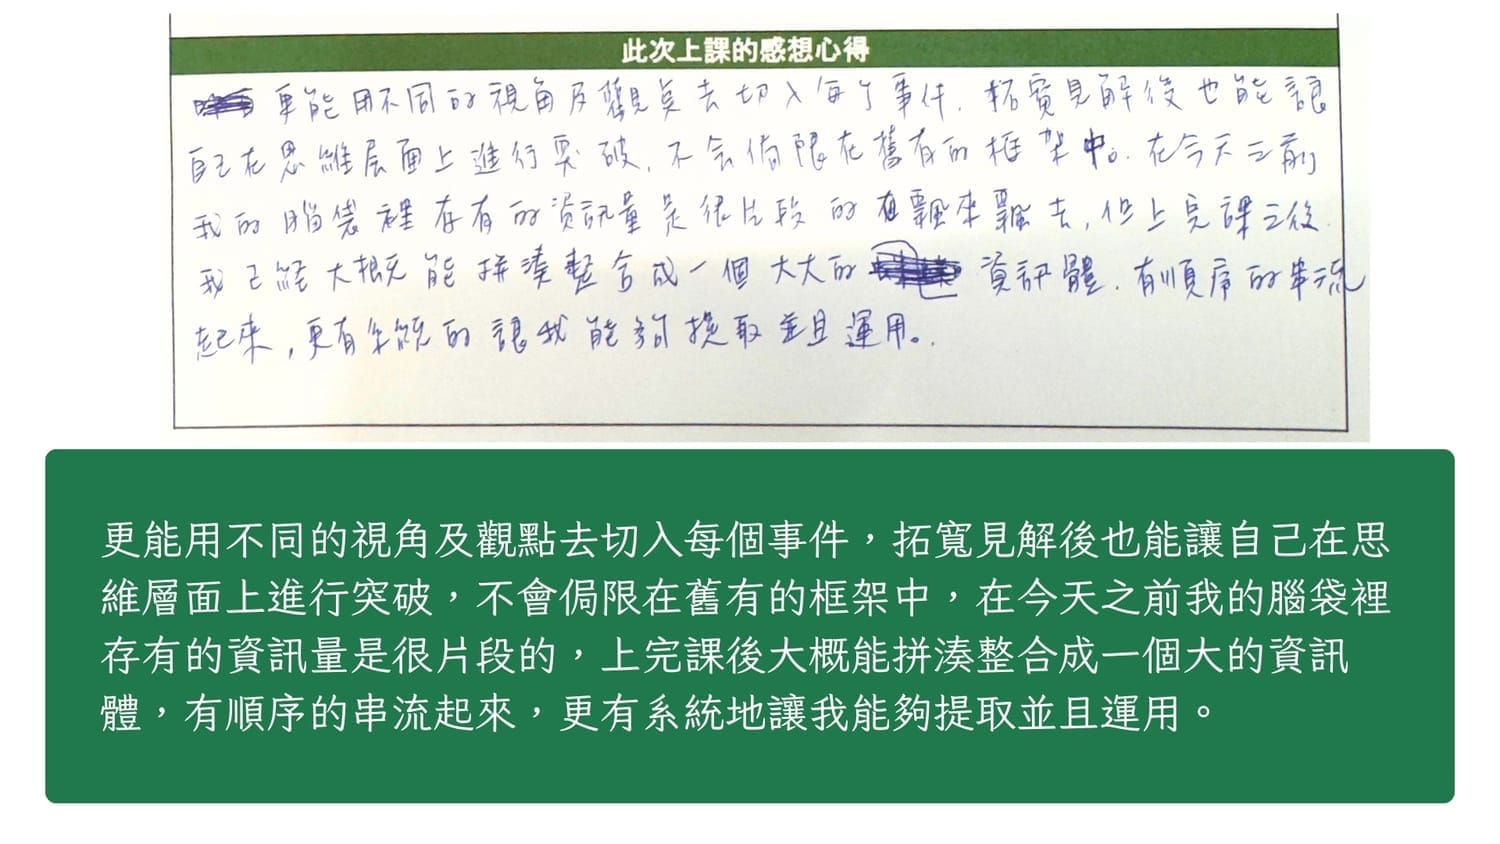 此次上課的感想心得
更能用不同的視角及觀點去切入每个事件,拓寬見解後也能讓
自己在思維层面上進行突破,不会侷限在舊有的框架中。在今天之前
我的腦袋裡存有的資訊量是很片段的在飄來飄去,但上完課之後
我已經大概能拼湊整合成一個大大的資訊體,有順序的串流
起來,更有系統的讓我能夠提取並且運用。
更能用不同的視角及觀點去切入每個事件,拓寬見解後也能讓自己在思
維層面上進行突破,不會侷限在舊有的框架中,在今天之前我的腦袋裡
存有的資訊量是很片段的,上完課後大概能拼湊整合成一個大的資訊
體,有順序的串流起來,更有系統地讓我能夠提取並且運用。